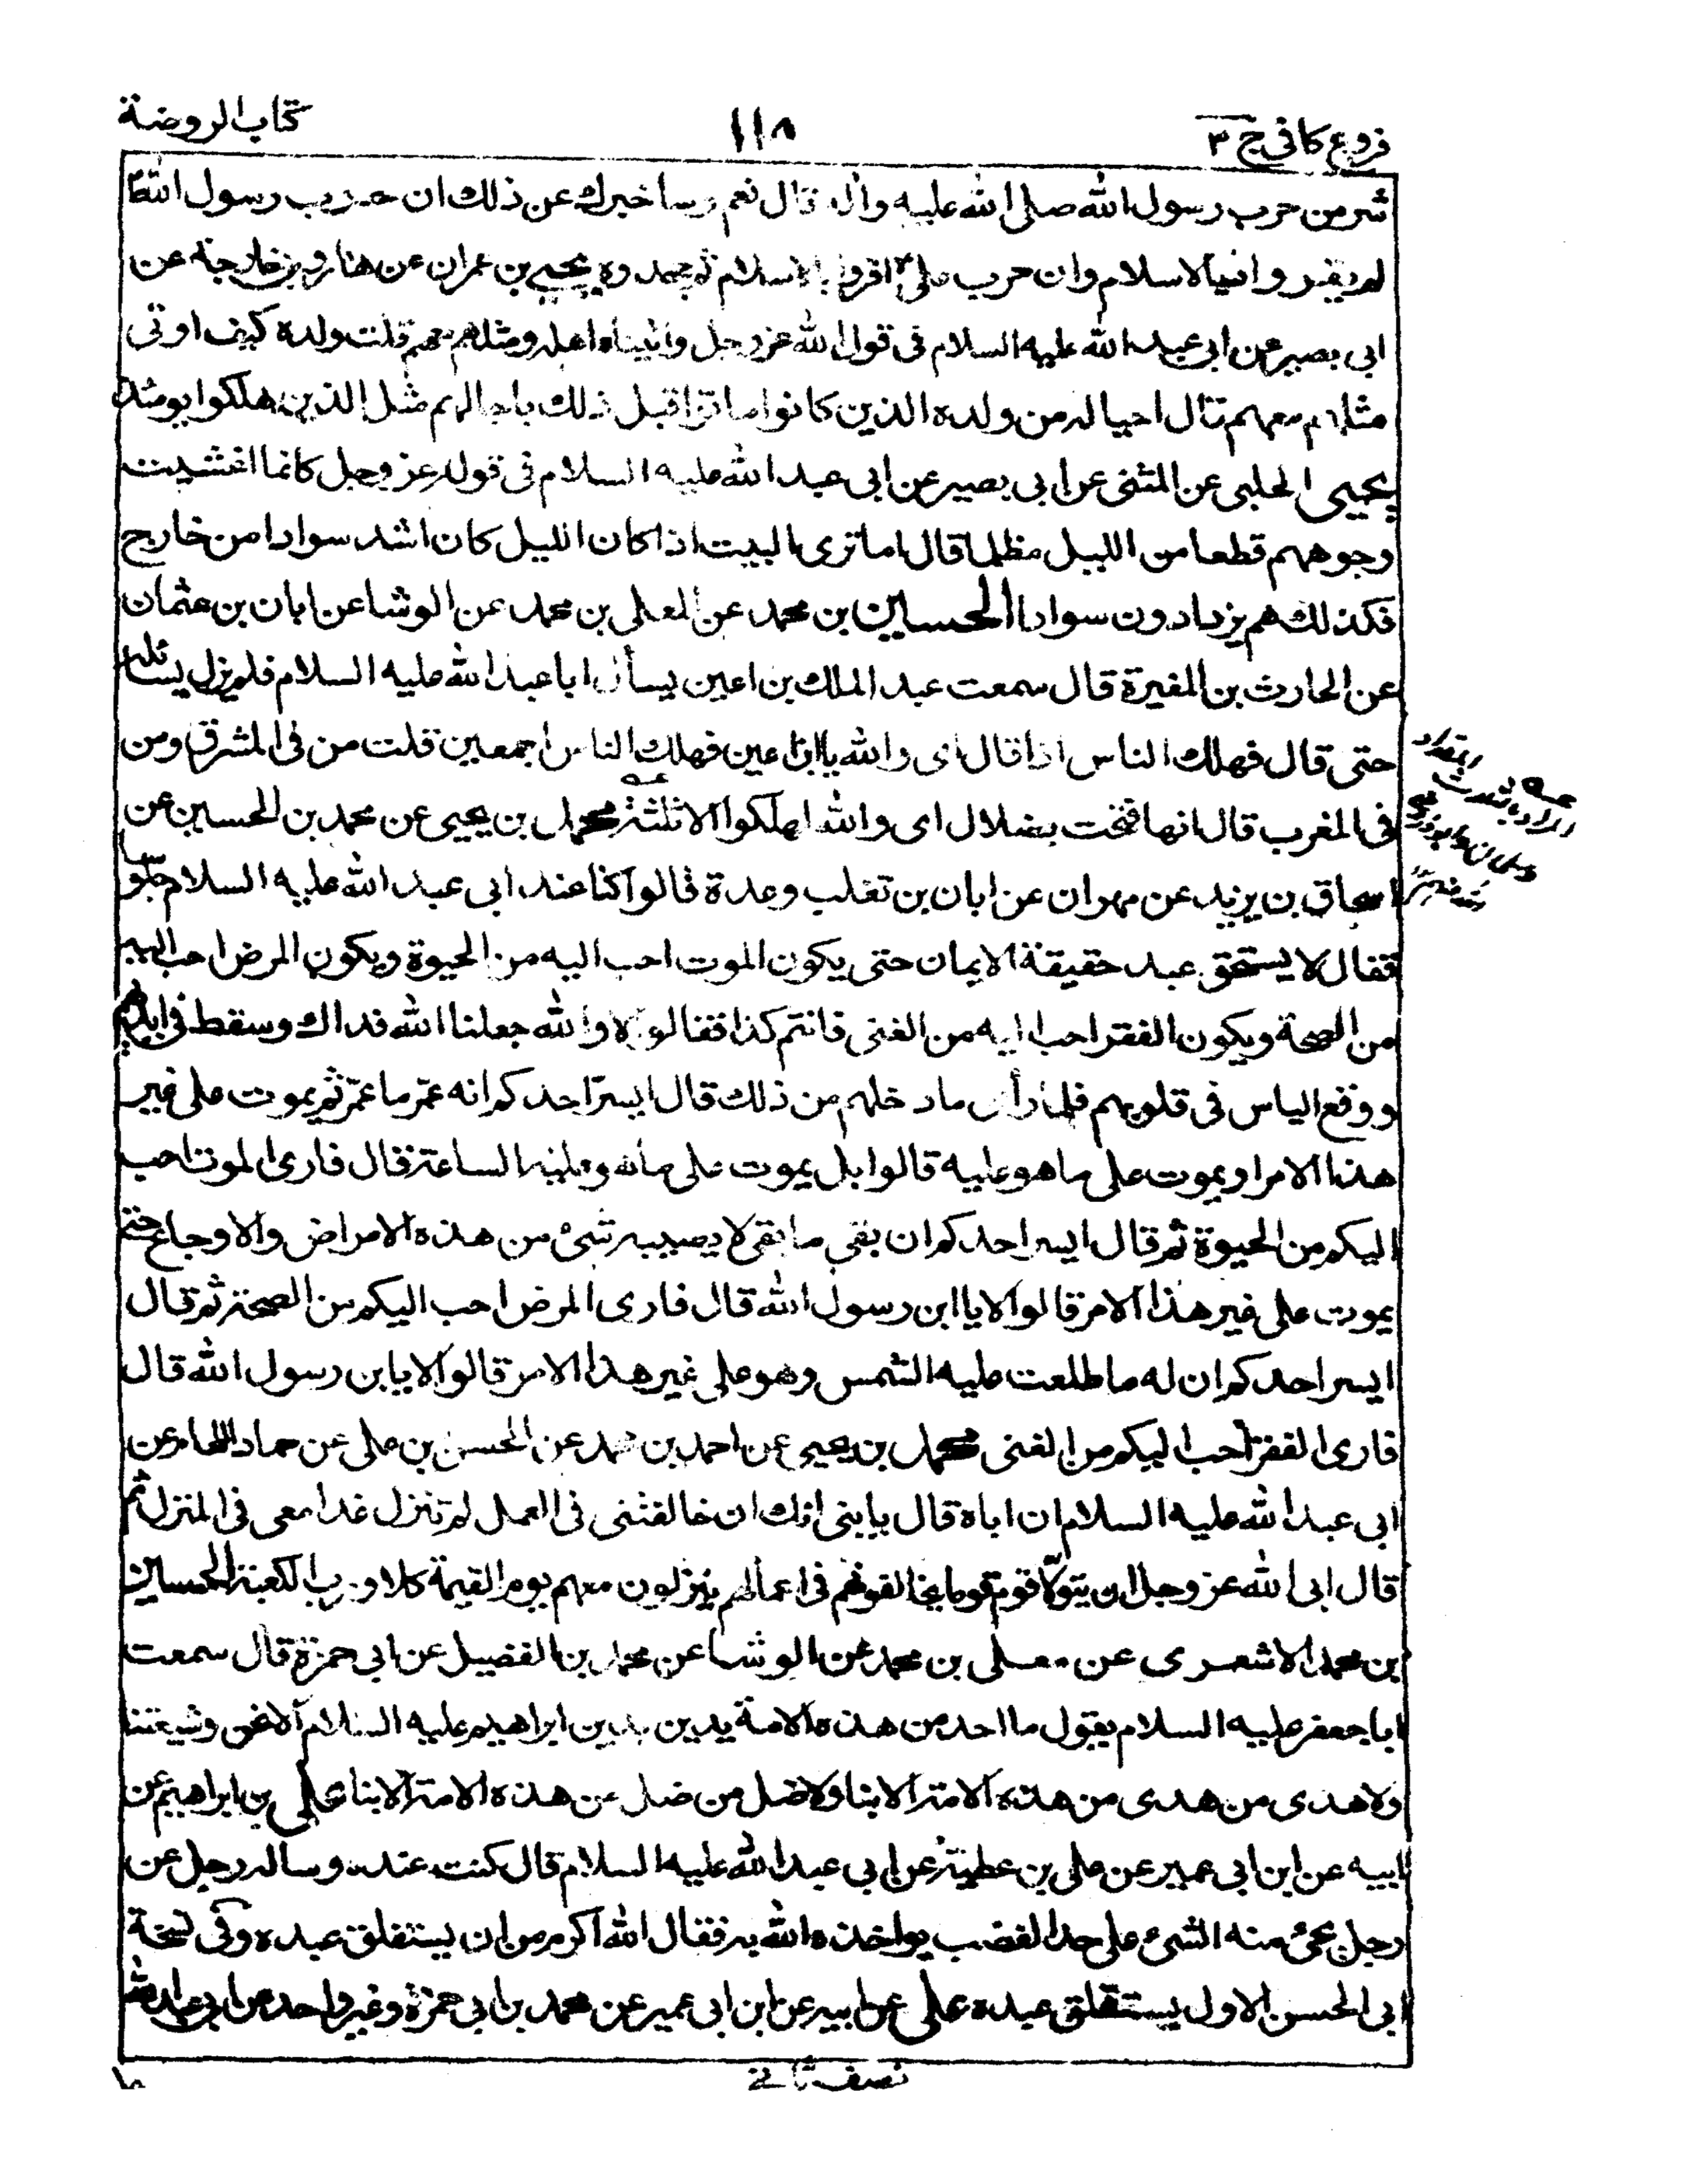 فروع كافى ج ٣
١١٨
كتاب الروضة
شر من حرب رسول الله صلى الله عليه وآله قال نعم وساخبرك عن ذلك ان حرب رسول الله
لم يقروا بالاسلام وان حرب على اقروا بالاسلام ثم جحدوه يحيى بن عمران عن هارون بن خارجة عن
ابى بصير عن ابى عبد الله عليه السلام فى قول الله عز وجل وآتيناه اهله ومثلهم معهم قلت ولده كيف اوتى
مثلهم معهم قال احيا له من ولده الذين كانوا ماتوا قبل ذلك باجالهم مثل الذين هلكوا يومئذ
يحيى الحلبى عن المثنى عن ابى بصير عن ابى عبد الله عليه السلام فى قوله عز وجل كانما اغشيت
وجوههم قطعا من الليل مظلما قال اما ترى البيت اذا كان الليل كان اشد سوادا من خارج
فكذلك هم يزدادون سوادا الحسين بن محمد عن المعلى بن محمد عن الوشا عن ابان بن عثمان
عن الحارث بن المغيرة قال سمعت عبد الملك بن اعين يسأل ابا عبد الله عليه السلام فلم يزل يسئله
حتى قال فهلك الناس اذا قال اى والله يا ابن اعين فهلك الناس اجمعين قلت من فى المشرق ومن
فى المغرب قال انها فتحت بضلال اى والله اهلكوا الا ثلثة محمد بن يحيى عن محمد بن الحسين عن
اسحاق بن يزيد عن مهران عن ابان بن تغلب وعدة قالوا كنا عند ابى عبد الله عليه السلام جلوسا
فقال لا يستحق عبد حقيقة الايمان حتى يكون الموت احب اليه من الحيوة ويكون المرض احب اليه
من الصحة ويكون الفقر احب اليه من الغنى فانتم كذا فقالوا لا والله جعلنا الله فداك وسقط فى ايديهم
ووقع الياس فى قلوبهم فلما رأى ما دخلهم من ذلك قال ايسر احدكم انه عمّر ما عمّر ثم يموت على غير
هذا الامر او يموت على ما هو عليه قالوا بل يموت على ما هو عليه الساعة قال فارى الموت احب
اليكم من الحيوة ثم قال ايسر احدكم ان بقى ما بقى لا يصيبه شئ من هذه الامراض والاوجاع حتى
يموت على غير هذا الامر قالوا لا يا ابن رسول الله قال فارى المرض احب اليكم من الصحة ثم قال
ايسر احدكم ان له ما طلعت عليه الشمس وهو على غير هذا الامر قالوا لا يا بن رسول الله قال
فارى الفقر احب اليكم من الغنى محمد بن يحيى عن احمد بن محمد عن الحسن بن على عن حماد اللحام عن
ابى عبد الله عليه السلام ان اباه قال يا بنى انك ان خالفتنى فى العمل لم تنزل غدا معى فى المنزل ثم
قال ابى الله عز وجل ان يتولّا قوم قوما يخالفونهم فى اعمالهم ينزلون معهم يوم القيمة كلا ورب الكعبة الحسين
بن محمد الاشعرى عن معلى بن محمد عن الوشا عن محمد بن الفضيل عن ابى حمزة قال سمعت
ابا جعفر عليه السلام يقول ما احد من هذه الامة يدين بدين ابراهيم عليه السلام الا نحن وشيعتنا
ولا هدى من هدى من هذه الامة الا بنا ولا ضل من ضل من هذه الامة الا بنا على بن ابراهيم عن
ابيه عن ابن ابى عمير عن على بن عطية عن ابى عبد الله عليه السلام قال كنت عنده وساله رجل عن
رجل يجئ منه الشئ على حد الغضب يواخذه الله به فقال الله اكرم من ان يستغلق عبده وفى نسخة
ابى الحسن الاول يستقلق عبده على عن ابيه عن ابن ابى عمير عن محمد بن ابى حمزة وغير واحد عن ابى عبد الله
نصف ثانى